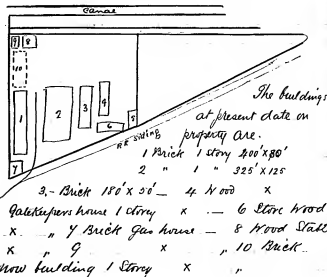 Canal
9 8
10
1 2 3 4
6 5
7
RR Siding
The buildings
at present date on
property are.
1 Brick 1 story 400'x80'
2 " 1 " 325'x125
3,- Brick 180'x50' - 4 Wood x
Gatekeepers house 1 story x - 6 Store Wood
x. „ 7 Brick Gas house - 8 Wood Stabl
x „ 9 x „ 10 Brick
now building 1 Story x „